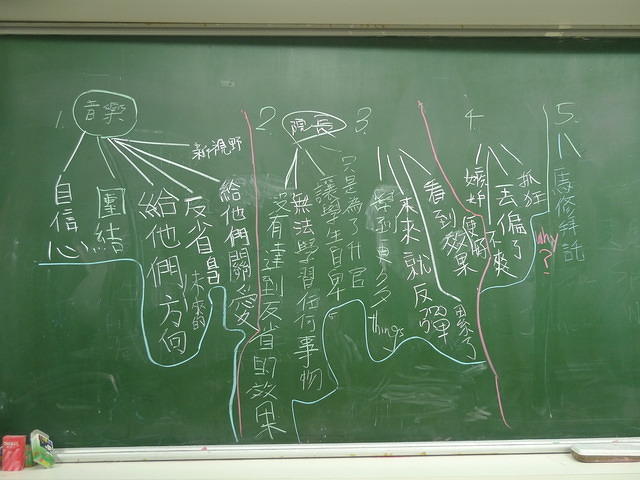 1.
音樂
自信心
團結
給他們方向
反省自
未來的
新視野
給他們關愛
2.
院長
沒有達到反省的效果
無法學習任何事物
讓學生自卑
只是為了升官
3.
學到更多
things
未來就反彈
看到效果
累了
4.
嫉妒
丟偏了
不爽
抓狂
why?
5.
馬修拜託